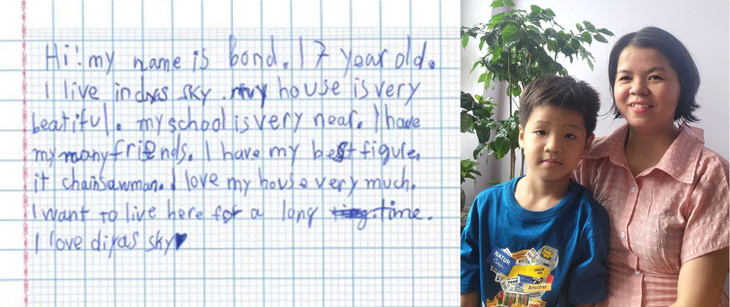 Hi! my name is bond. I 7 year old.
I live in dyas sky. my house is very
beatiful. my school is very near. I have
my many friends. I have my best figure,
it chainsawman. I love my house very much.
I want to live here for a long time.
I love diyas sky♥
NATUR